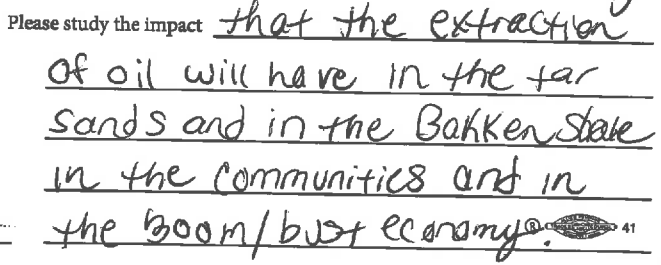 Please study the impact that the extraction
of oil will have in the tar
sands and in the Bakken Shale
in the communities and in
the boom/bust economy. ® 41